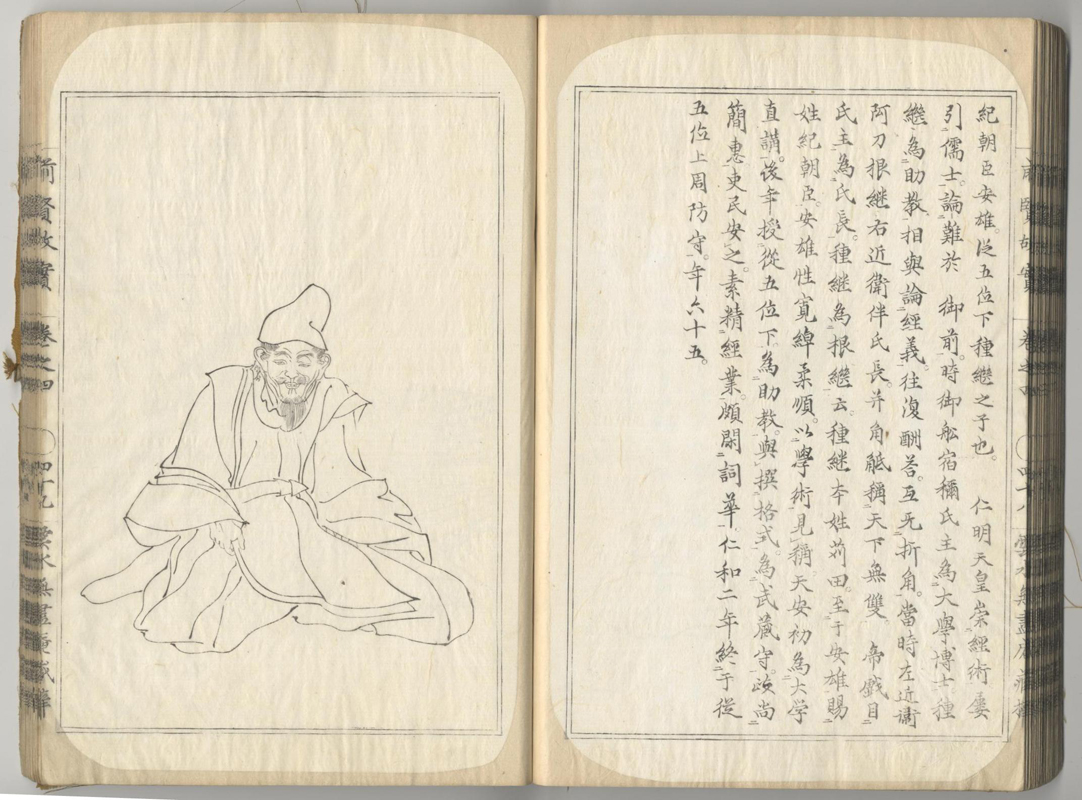 紀朝臣安雄。從五位下種繼之子也。 仁明天皇崇經術屢
引儒士。論難於 御前。時御船宿禰氏主為大學博士種
繼為助教相與論經義。往復酬荅。互无折角。當時左近衛
阿刀根继右近衛伴氏長。并角觝稱天下無雙。帝戲目
氏主為氏長。種继為根繼云。種继本姓苅田。至于安雄賜
姓紀朝臣。安雄性寬綽柔順。以學術見稱天安初為大学
直講。後年授從五位下。為助教。與撰格式。為武蔵守。政尚
簡惠吏民安之。素精經業。頗閑詞華仁和二年終于從
五位上周防守。年六十五。
前賢故實 卷之四 四十九 雲水無盡庵藏